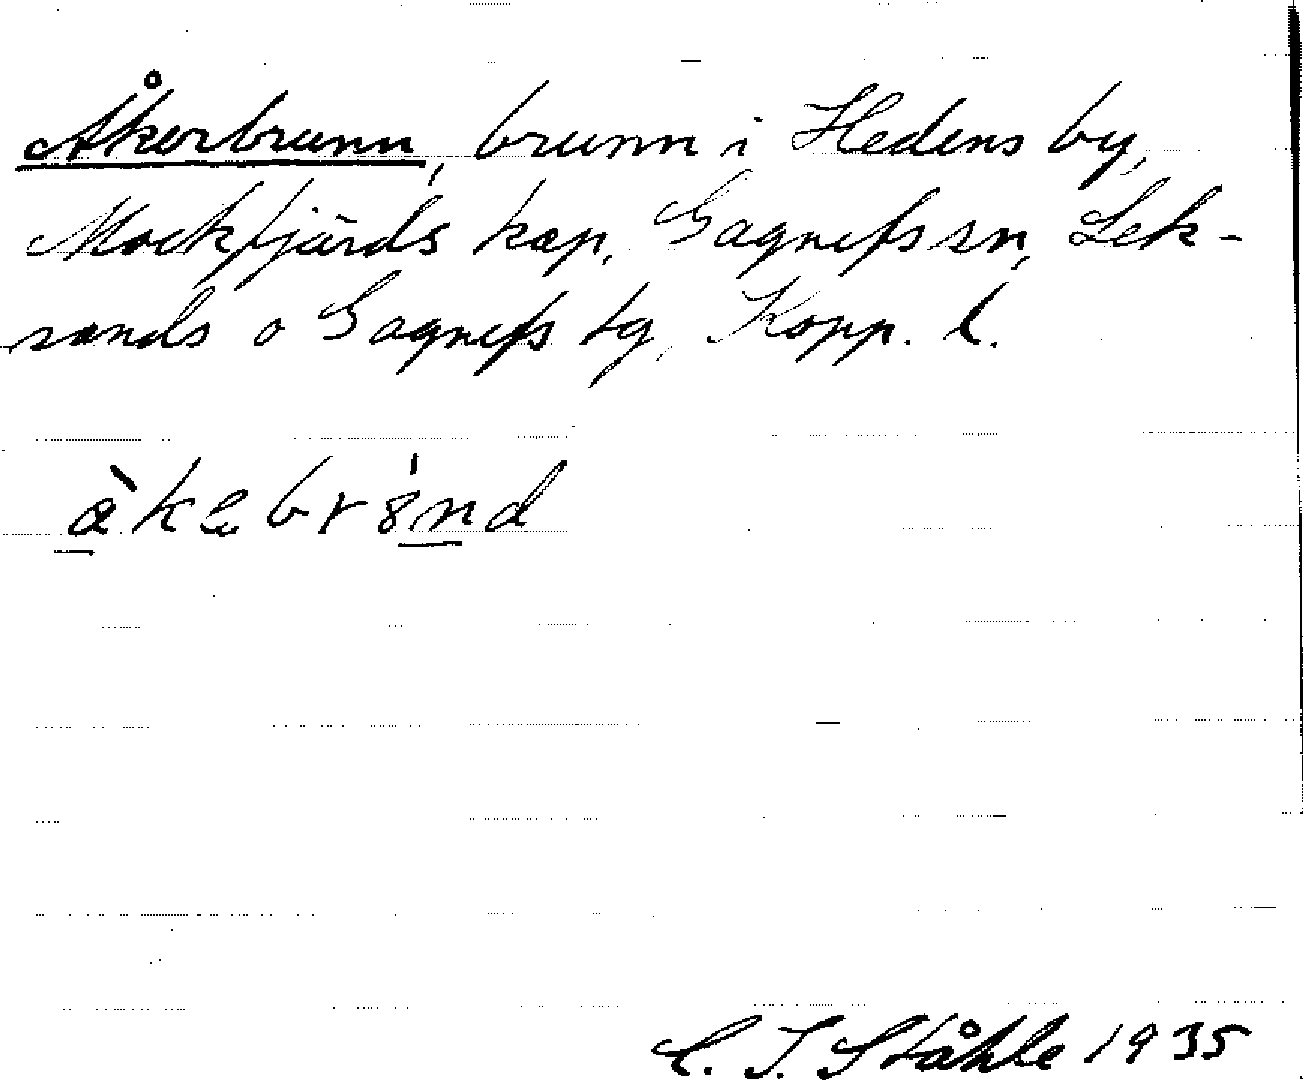 Åkerbrunn, brunn i Hedens by,
Mockfjärds kap, Gagnefs sn, Lek-
sands o Gagnefs tg, Kopp. l.
å̀kebrønd
C. I. Ståhle 1935